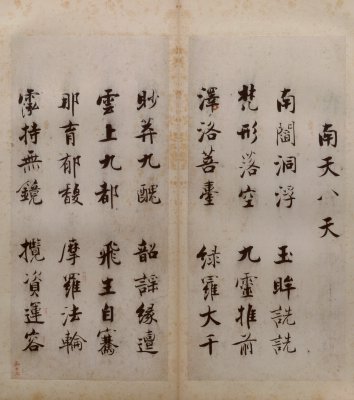 南天八天
南閻洞浮 玉眸詵詵
梵形落空 九靈推前
澤洛菩臺 綠羅大千
眇莽九醜 韶謡緣邅
雲上九都 飛生自騫
那育郁馥 摩羅法輪
霐持無鏡 攬資運容